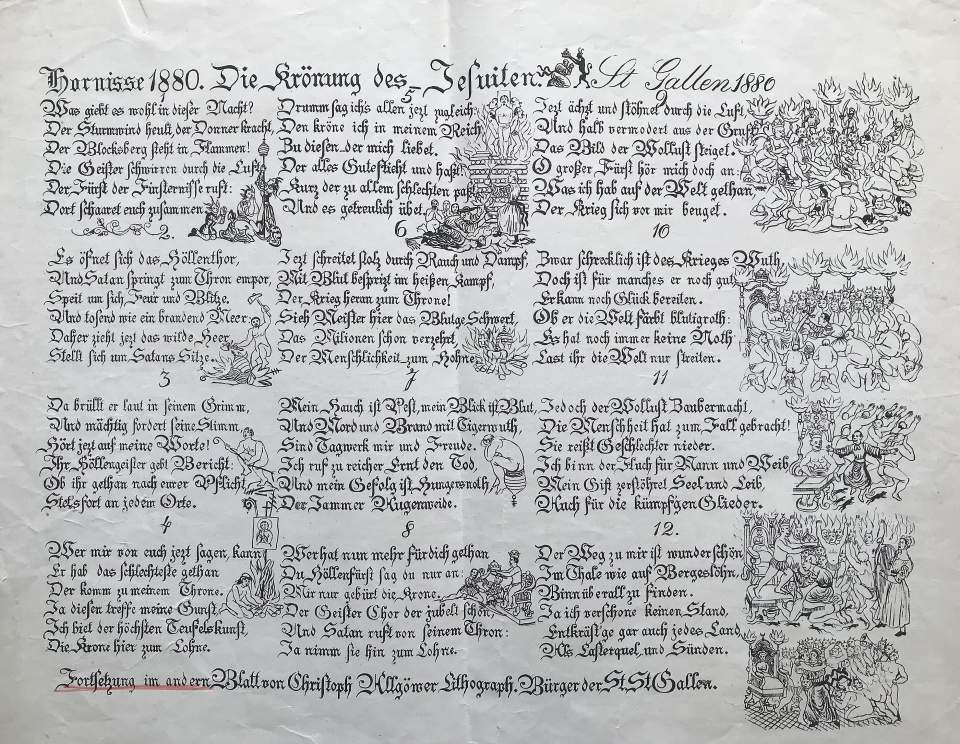 Hornisse 1880. Die Krönung des Jesuiten. St Gallen 1880
Was giebt es wohl in dieser Nacht?
Der Sturmwind heult der Donner kracht,
Der Blocksberg steht in Flammen!
Die Geister schwirren durch die Luft
Der Fürst der Finsternisse ruft:
Dort schaaret euch zusammen.
2.
Es öfnet sich das Höllenthor,
Und Satan springt zum Thron empor,
Speit um sich, Feur und Blitze.
Und tosend wie ein brandend Meer
Daher zieht jezt das wilde Heer
Stellt sich um Satans Sitze.
3
Da brüllt er laut in seinem Grimm,
Und mächtig fordert seine Stimm,
Hört jezt auf meine Worte!
Ihr Höllengeister gebt Bericht:
Ob ihr gethan nach eurer Pflicht
Stets fort an jedem Orte.
4
Wer mir von euch jezt sagen kann
Er hab das schlechteste gethan
Der komm zu meinem Throne.
Ja diesen treffe meine Gunst,
Ich biet der höchsten Teufelskunst,
Die Krone hier zum Lohne.
5
Drumm sag ich's allen jezt zugleich:
Den kröne ich in meinem Reich
Zu diesen der mich liebet.
Der alles Gute flieht und haßt
Kurz der zu allem schlechten paßt
Und es getreulich übet.
6
Jezt schreitet stolz durch Rauch und Dampf,
Mit Blut besprizt im heißen Kampf,
Der Krieg heran zum Throne!
Sieh Meister hier das Blutge Schwert,
Das Milionen schon verzehrt
Der Menschlichkeit zum Hohne.
7
Mein Hauch ist Pest, mein Blick ist Blut,
Und Mord und Brand mit Tigerwuth,
Sind Tagwerk mir und Freude.
Ich ruf zu reicher Ernt den Tod,
Und mein Gefolg ist Hungersnoth,
Der Jammer Augenweide.
8
Wer hat nun mehr für dich gethan
Du Höllenfürst sag du nur an:
Mir nur gebürt die Krone.
Der Geister Chor der jubelt schön,
Und Satan ruft von seinem Thron:
Ja nimm sie hin zum Lohne.
Jezt ächzt und stöhnet durch die Luft,
Und halb vermodert aus der Gruft
Das Bild der Wollust steiget.
O großer Fürst hör mich doch an:
Was ich hab auf der Welt gethan
Der Krieg sich vor mir beuget.
10
Zwar schrecklich ist des Krieges Wuth,
Doch ist für manches er noch gut,
Er kann noch Glück bereiten.
Ob er die Welt färbt blutigroth:
Es hat noch immer keine Noth
Last ihr die Welt nur streiten.
11
Jedoch der Wollust Zaubermacht,
Die Menschheit hat zum Fall gebracht!
Sie reißt Geschlechter nieder.
Ich binn der Fluch für Mann und Weib
Mein Gift zerstöhret Seel und Leib,
Auch für die kümpfgen Glieder.
12.
Der Weg zu mir ist wunderschön,
Im Thale wie auf Bergeshöhn,
Binn überall zu finden.
Ja ich verschone keinen Stand,
Entkräft'ge gar auch jedes Land
Als Lasterquel, und Sünden.
Fortsetzung im andern Blatt von Christoph Allgöwer Lithograph. Bürger der St. St Gallen.